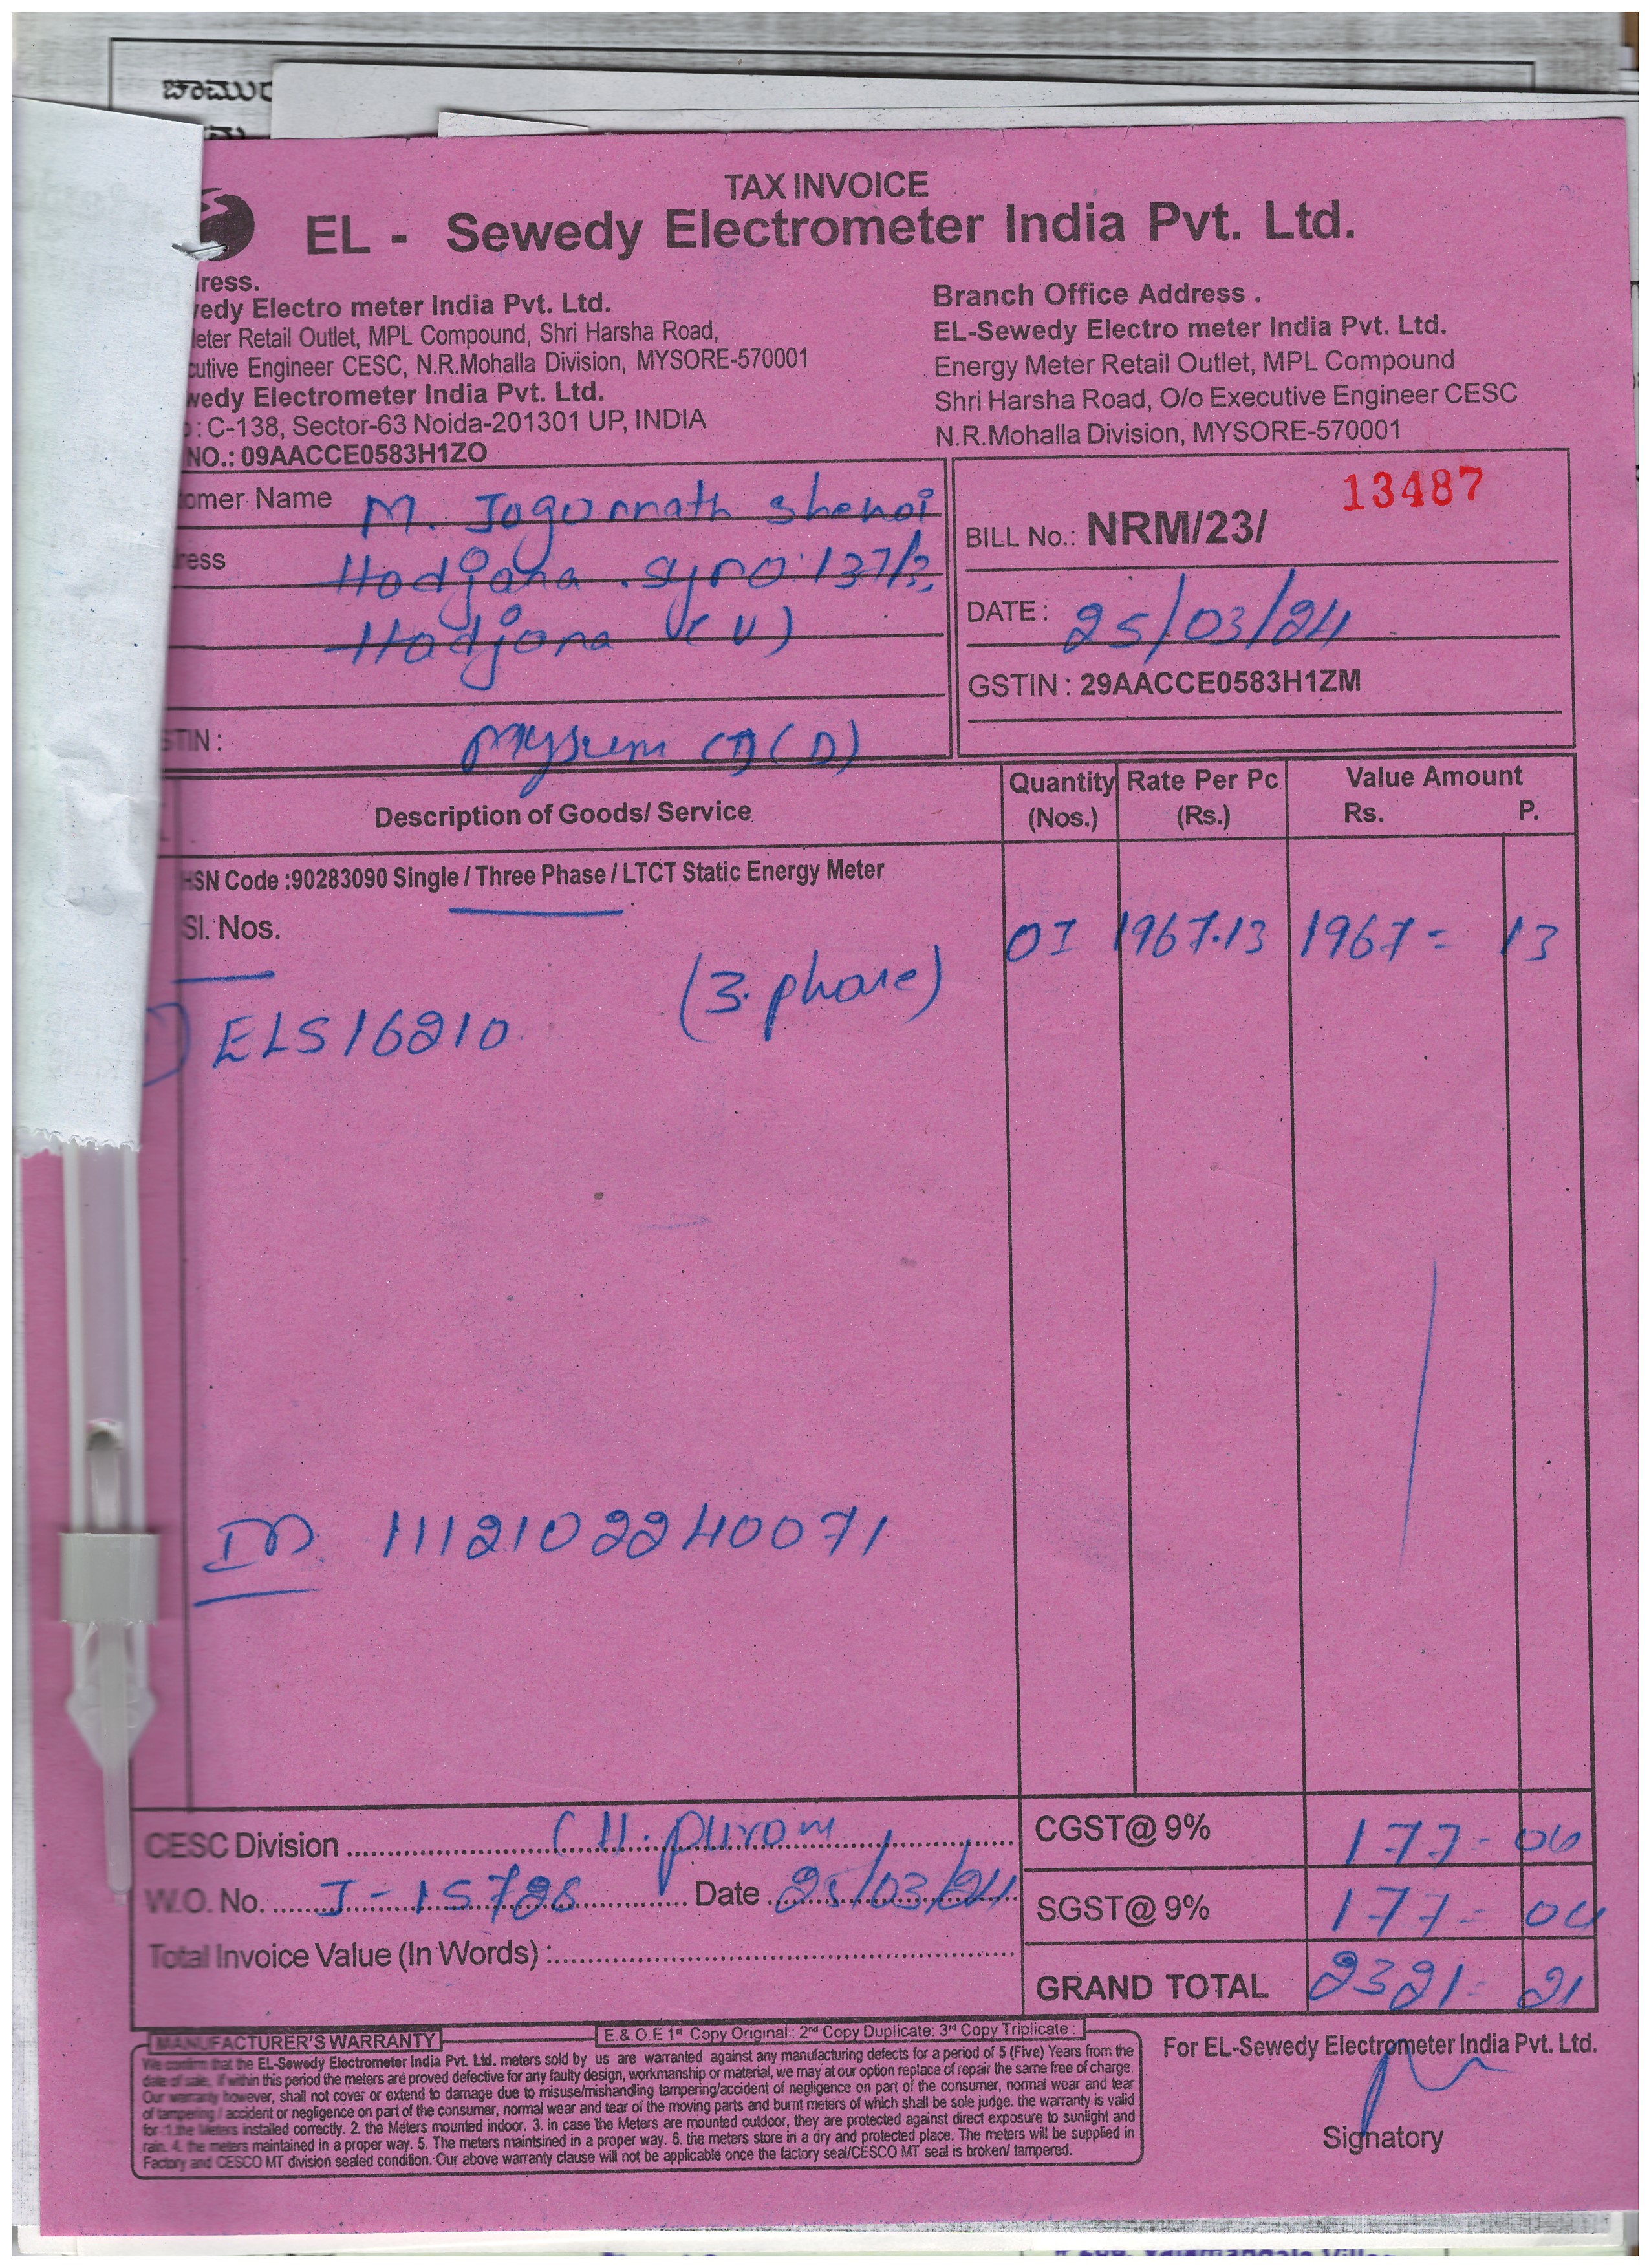 ಚಾಮುರ
TAX INVOICE
EL - Sewedy Electrometer India Pvt. Ltd.
ress.
wedy Electro meter India Pvt. Ltd.
eter Retail Outlet, MPL Compound, Shri Harsha Road,
cutive Engineer CESC, N.R.Mohalla Division, MYSORE-570001
wedy Electrometer India Pvt. Ltd.
: C-138, Sector-63 Noida-201301 UP, INDIA
NO.: 09AACCE0583H1ZO
Branch Office Address .
EL-Sewedy Electro meter India Pvt. Ltd.
Energy Meter Retail Outlet, MPL Compound
Shri Harsha Road, O/o Executive Engineer CESC
N.R.Mohalla Division, MYSORE-570001
omer Name M. Jogannath Shenoi
ress Hadjana . Syno: 137/2,
Hadjana (V)
TIN :
13487
BILL No.: NRM/23/
DATE : 25/03/24
GSTIN : 29AACCE0583H1ZM
Description of Goods/ Service Quantity (Nos.) Rate Per Pc (Rs.) Value Amount Rs. P.
HSN Code :90283090 Single / Three Phase / LTCT Static Energy Meter
Sl. Nos. 01 1967.13 1967 = 13
(3. phase)
ELS16210
ID. 1112102240071
CESC Division CH. puram
W.O. No. J-15728 Date 25/03/24
Total Invoice Value (In Words) :
CGST@ 9% 177 - 04
SGST@ 9% 177 = 04
GRAND TOTAL 2321 = 21
MANUFACTURER'S WARRANTY E.& O.E 1st Copy Original : 2nd Copy Duplicate: 3rd Copy Triplicate :
We confirm that the EL-Sewedy Electrometer India Pvt. Ltd. meters sold by us are warranted against any manufacturing defects for a period of 5 (Five) Years from the
date of sale, if within this period the meters are proved defective for any faulty design, workmanship or material, we may at our option replace of repair the same free of charge.
Our warranty however, shall not cover or extend to damage due to misuse/mishandling tampering/accident of negligence on part of the consumer, normal wear and tear
of tampering / accident or negligence on part of the consumer, normal wear and tear of the moving parts and burnt meters of which shall be sole judge. the warranty is valid
for :1.the Meters installed correctly. 2. the Meters mounted indoor. 3. in case the Meters are mounted outdoor, they are protected against direct exposure to sunlight and
rain. 4. the meters maintained in a proper way. 5. The meters maintsined in a proper way. 6. the meters store in a dry and protected place. The meters will be supplied in
Factory and CESCO MT division sealed condition. Our above warranty clause will not be applicable once the factory seal/CESCO MT seal is broken/ tampered.
For EL-Sewedy Electrometer India Pvt. Ltd.
Signatory